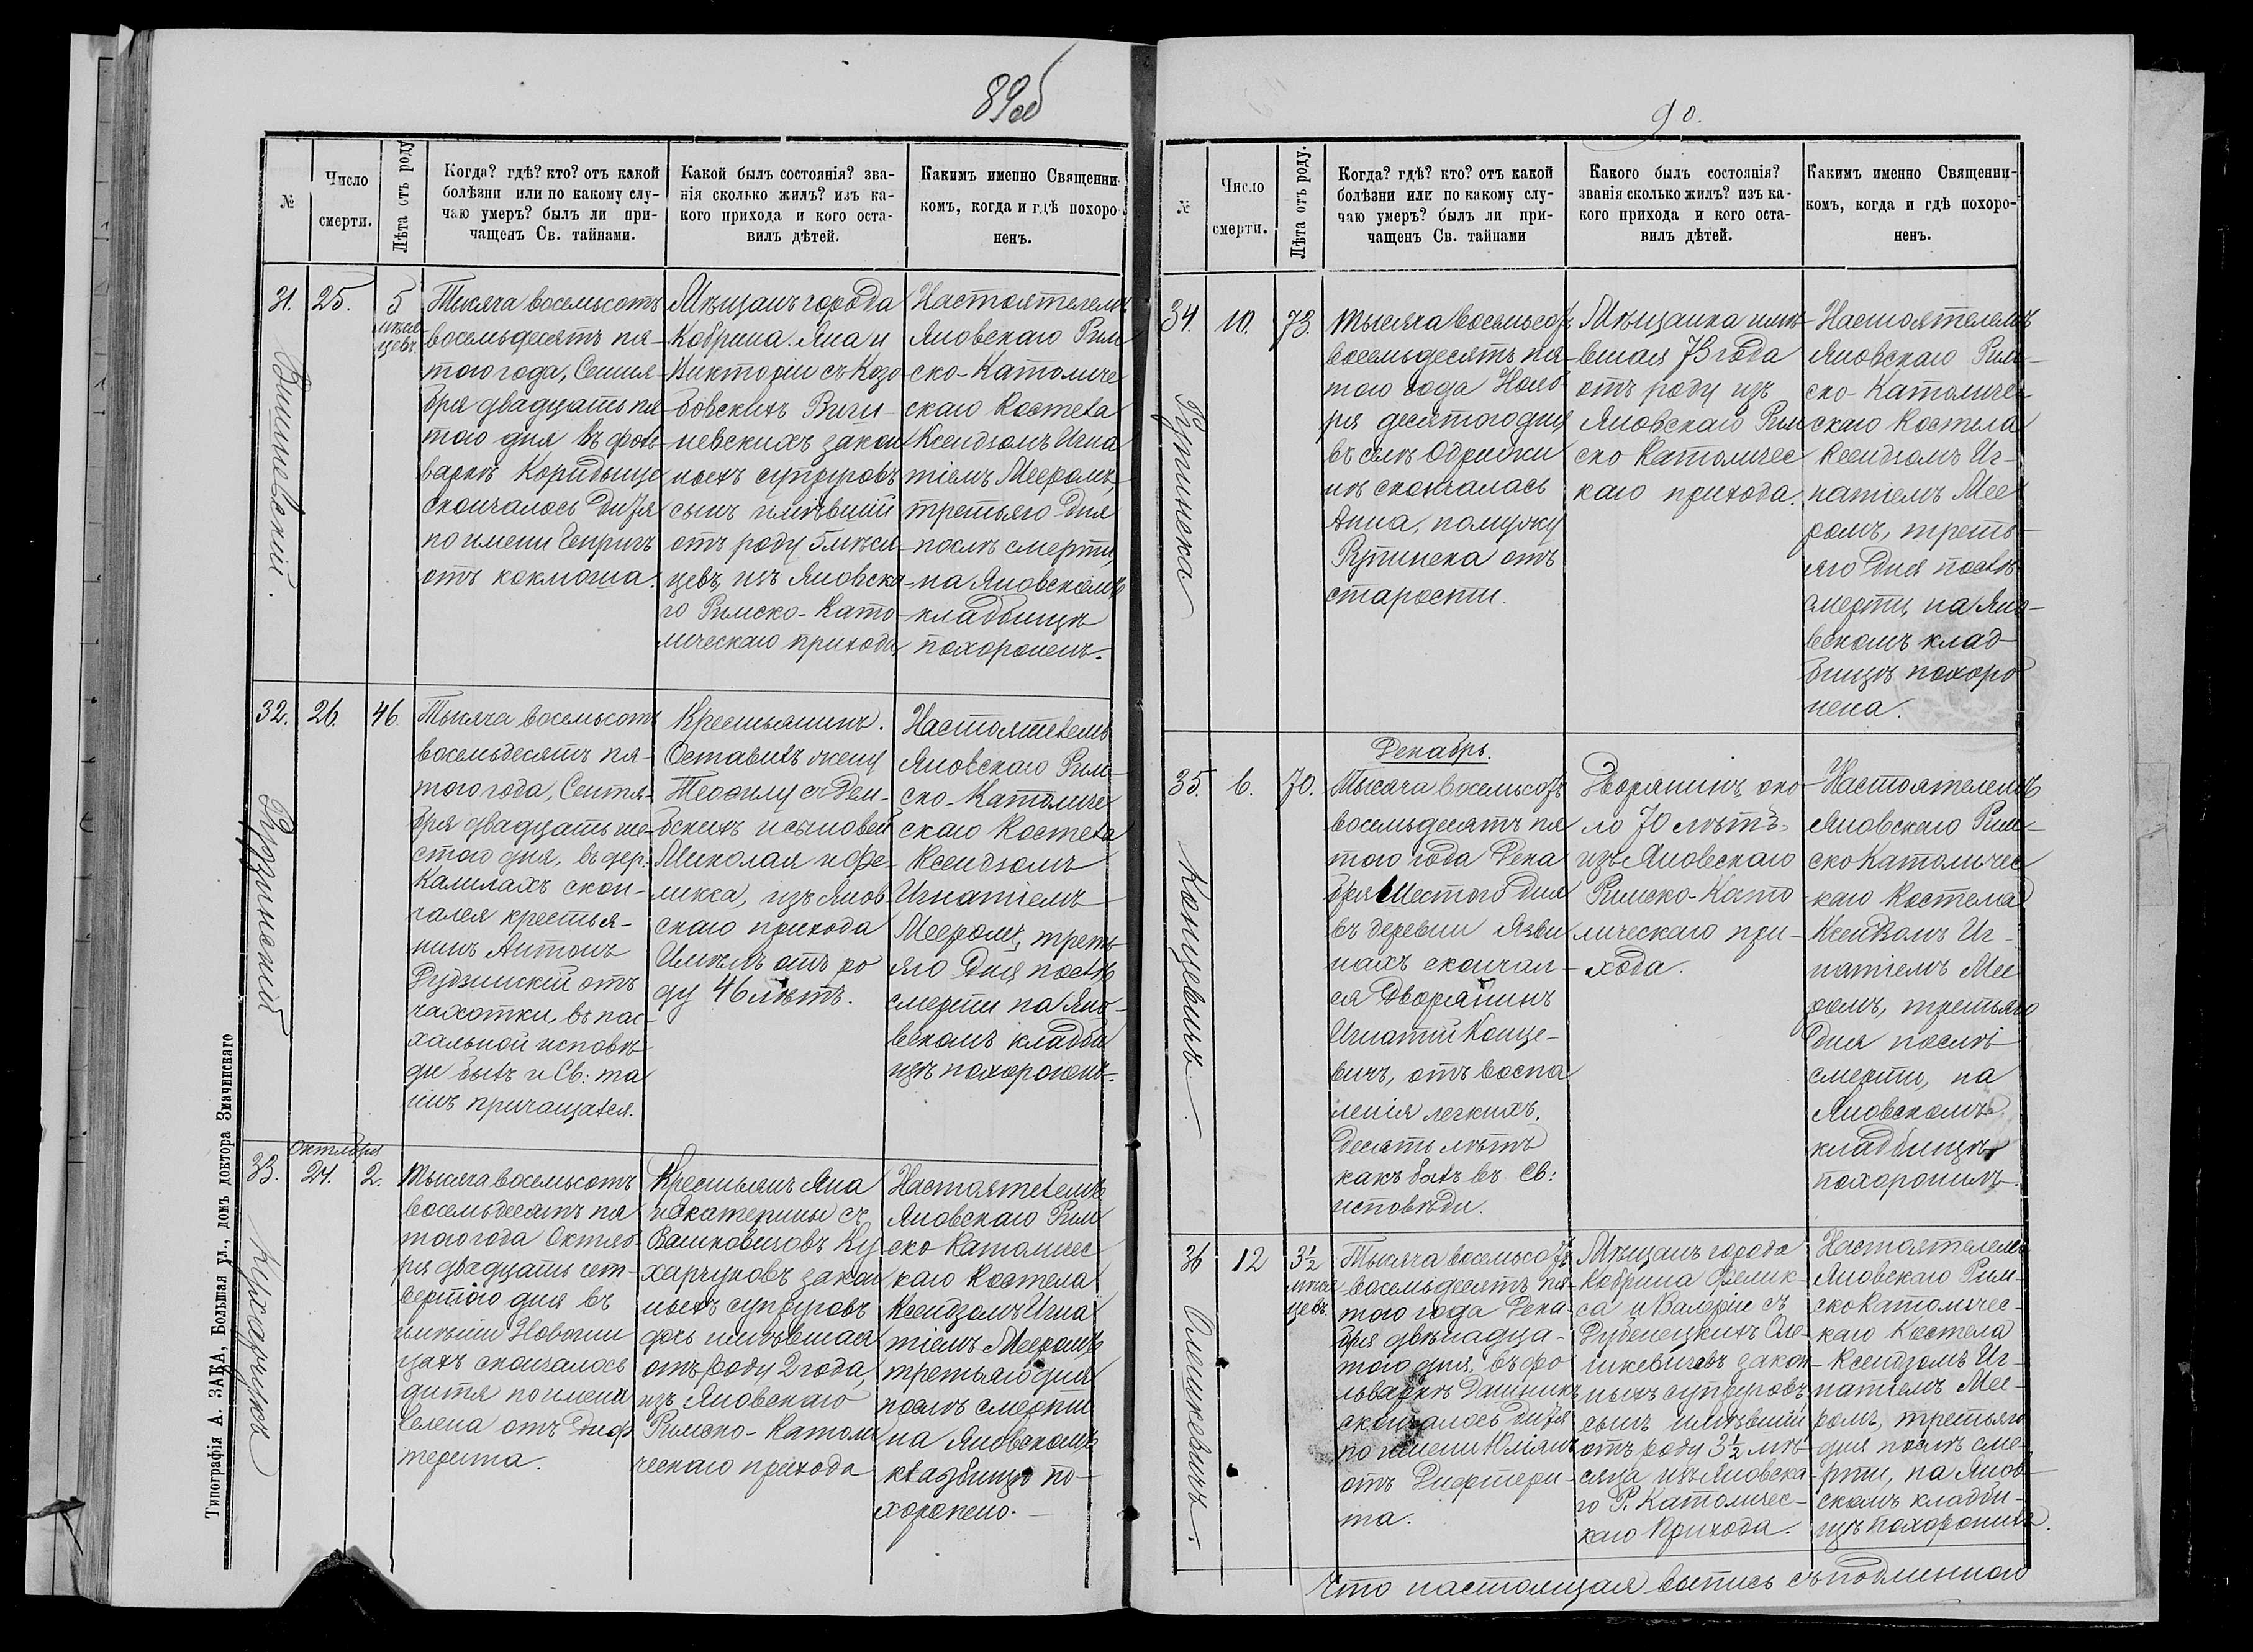 89об
№
Число
смерти.
Лѣта отъ роду
Когда? гдѣ? кто? отъ какой
болѣзни или по какому слу-
чаю умеръ? былъ ли при-
чащенъ Св. тайнами.
Какой былъ состоянія? зва-
нія сколько жилъ? изъ ка-
кого прихода и кого оста-
вилъ дѣтей.
Какимъ именно Священни-
комъ, когда и гдѣ похоро-
ненъ.
31.
25.
5
мѣся
цевъ.
Тысяча восемьсотъ
восемьдесятъ пя-
того года, Сентя-
бря двадцать пя
того дня въ фоль
варкѣ Коридище
скончалось дитя
по имени Генрихъ
отъ коклюша.
Мѣщанъ города
Кобрина Яна и
Викторіи съ Козо
бовскихъ Виши-
невскихъ закон
ныхъ супруговъ
сынъ имѣвшій
отъ роду 5 мѣся
цевъ, изъ Яновска
го Римско-Като
лическаго прихода
Настоятелемъ
Яновскаго Рим
ско-Католиче
скаго Костела
Ксендзомъ Игна
тіемъ Мееромъ,
третьяго дня
послѣ смерти,
на Яновскомъ
кладбищѣ
похороненъ.
Вишневскій.
32.
26.
46.
Тысяча восемьсотъ
восемьдесятъ пя-
того года, Сентя-
бря двадцать ше-
стого дня, въ дер.
Калилахъ скон-
чался крестья-
нинъ Антонъ
Рудзинскій отъ
чахотки, въ пас-
хальной исповѣ-
ди былъ и Св: та
инъ причащался.
Крестьянинъ.
Оставилъ жену
Теофилу съ Дем-
бскихъ и сыновей
Миколая и Фе-
ликса, изъ Янов
скаго прихода
Имѣлъ отъ ро
ду 46 лѣтъ.
Настоятелемъ
Яновскаго Рим-
ско-Католиче
скаго Костела
Ксендзомъ
Игнатіемъ
Мееромъ, треть
яго дня послѣ
смерти на Яно-
вскомъ кладби
щѣ похороненъ.
Рудзинскій
33.
Октября
24.
2.
Тысяча восемьсотъ
восемьдесятъ пя
того года Октяб-
ря двадцать чет-
вертого дня въ
имѣніи Новоши
цахъ скончалось
дитя по имени
Елена отъ Диф
терита.
Крестьянъ Яна
и Екатерины съ
Вашкевичовъ Ку
харчуковъ закон
ныхъ супруговъ
дочь имѣвшая
отъ роду 2 года,
изъ Яновскаго
Римско-Католи
ческаго прихода
Настоятелемъ
Яновскаго Рим
ско Католичес
каго Костела
Ксендзомъ Игна
тіемъ Мееромъ
третьяго дня
послѣ смерти
на Яновскомъ
кладбищѣ по-
хоронено.
Кухарчукъ
Типографія А. ЗАКА, Большая ул., домъ доктора Значинскаго
90.
№
Число
смерти.
Лѣта отъ роду.
Когда? гдѣ? кто? отъ какой
болѣзни или по какому слу-
чаю умеръ? былъ ли при-
чащенъ Св. тайнами
Какого былъ состоянія?
званія сколько жилъ? изъ ка-
кого прихода и кого оста-
вилъ дѣтей.
Какимъ именно Священни-
комъ, когда и гдѣ похоро-
ненъ.
34.
10.
73.
Тысяча восемьсотъ
восемьдесятъ пя-
того года Нояб-
ря десятого дня
въ селѣ Одрижи
нѣ скончалась
Анна, по мужу
Рутинска отъ
старости.
Мѣщанка имѣ-
вшая 73 года
отъ роду изъ
Яновскаго Рим
ско Католичес
каго прихода.
Настоятелемъ
Яновскаго Рим-
ско-Католиче-
скаго Костела
Ксендзомъ Иг-
натіемъ Мее
ромъ, треть-
яго дня послѣ
смерти, на Яно-
вскомъ клад-
бищѣ похоро
нена.
Рутинска
Декабрь.
35.
6.
70.
Тысяча восемьсотъ
восемьдесятъ пя
того года Дека
бря шестого дня
въ деревни Язви
нахъ скончал-
ся Дворянинъ
Игнатій Конце-
вичъ, отъ воспа
ленія легкихъ.
Десять лѣтъ
какъ былъ въ Св:
исповѣди.
Дворянинъ око-
ло 70 лѣтъ
изъ Яновскаго
Римско-Като
лическаго при-
хода.
Настоятелемъ
Яновскаго Рим-
ско Католичес
каго Костела
Ксендзомъ Иг-
натіемъ Мее
ромъ, третьяго
дня послѣ
смерти, на
Яновскомъ
кладбищѣ
похоронилъ.
Концевичъ.
36
12
3½
мѣся
цевъ.
Тысяча восемьсотъ
восемьдесятъ пя-
того года Дека-
бря двѣнадца-
того дня, въ фо
льваркѣ Дашникъ
скончалось дитя
по имени Юліянъ
отъ Дифтери-
та.
Мѣщанъ города
Кобрина Феликс-
са и Валеріи съ
Рубенецкихъ Оле-
шкевичевъ закон-
ныхъ супруговъ
сынъ имѣвшій
отъ роду 3½ мѣ-
сяца изъ Яновска-
го Р. Католичес-
каго Прихода.
Настоятелемъ
Яновскаго Рим-
ско Католичес-
каго Костела
Ксендзомъ Иг-
натіемъ Мее-
ромъ, третьяго
дня послѣ сме-
рти, на Янов-
скомъ кладби-
щѣ похоронилъ.
Олешкевичъ.
Что настоящая выпись съ подлинною